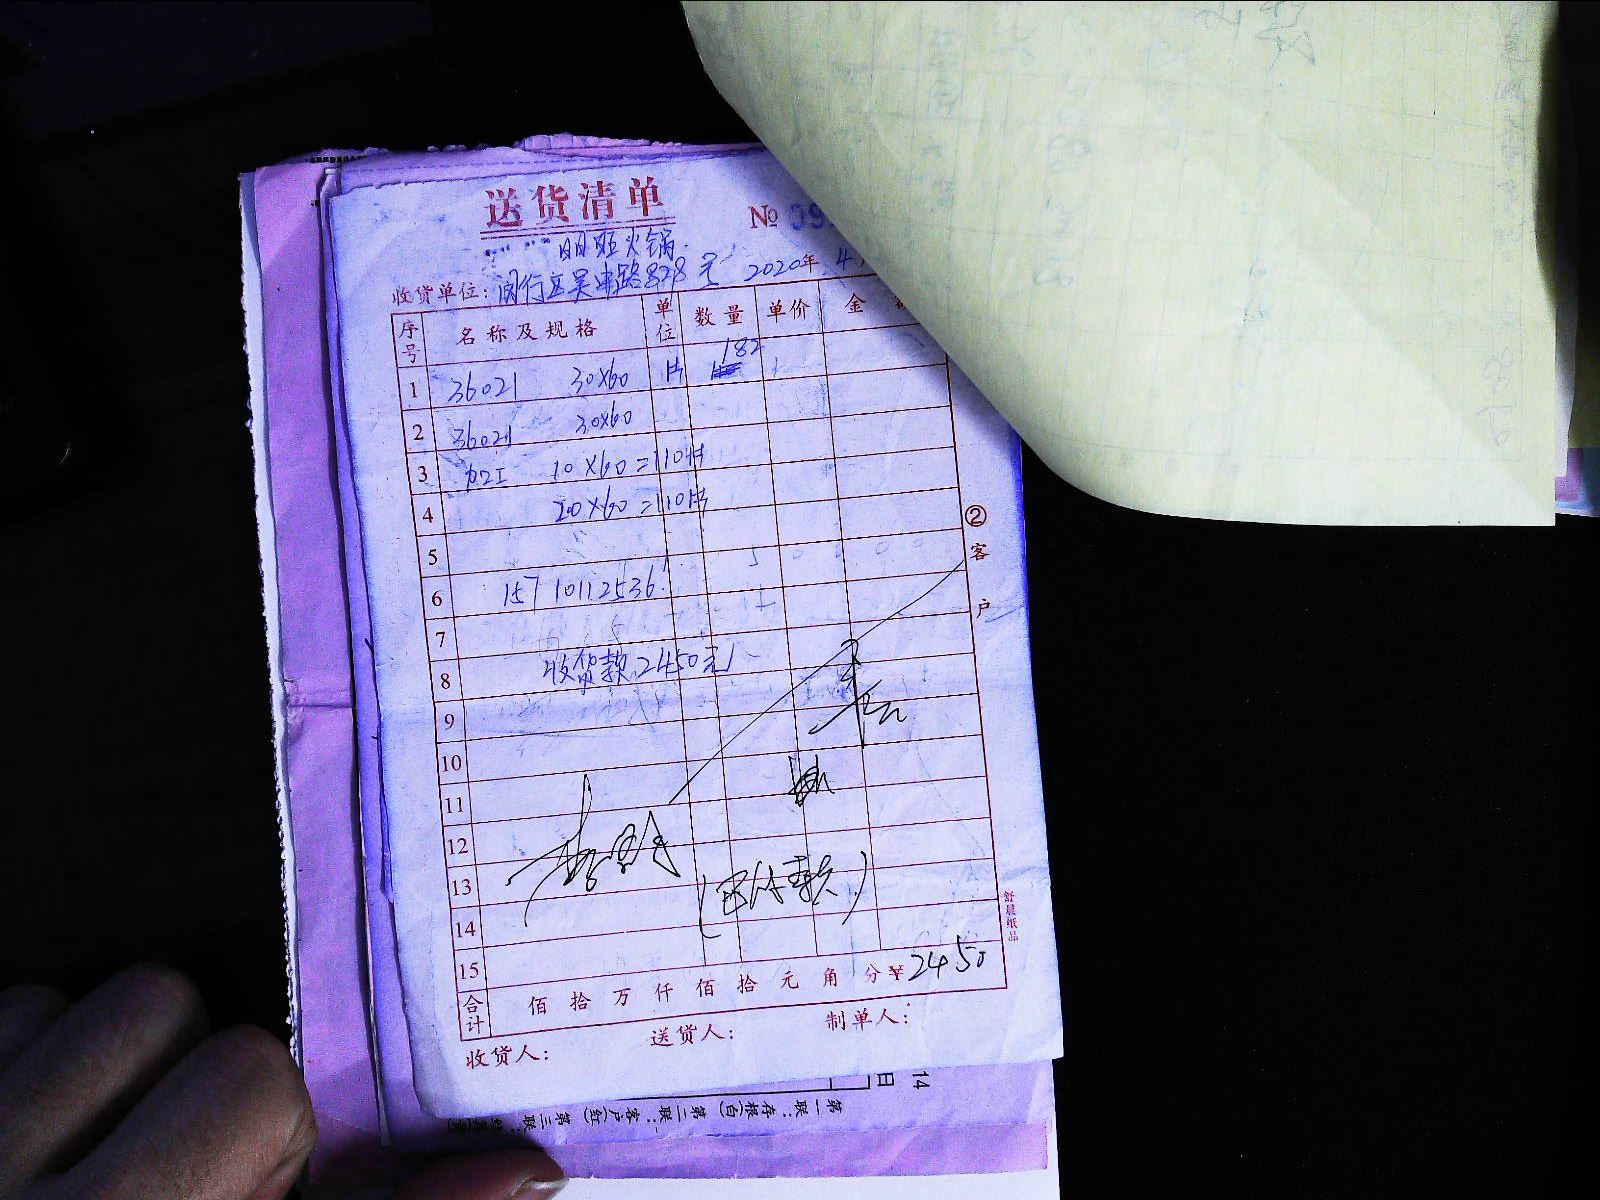 送货清单
№ 09
火锅
收货单位: 闵行区吴中路828号 2020年 4
序号 名称及规格 单位 数量 单价 金
1 36021 30×60 片 182
2 36021 30×60
3 加工 10×60=110片
4 20×60=110片
5
6 15710112536
7
8 收货款2450元
9
10
11
12
13
14 (已付款)
15
合计 佰拾万仟佰拾元角分¥2450
收货人: 送货人: 制单人:
②客户
舒晨纸品
14
日
第一联:存根(白) 第二联:客户(红) 第三联: